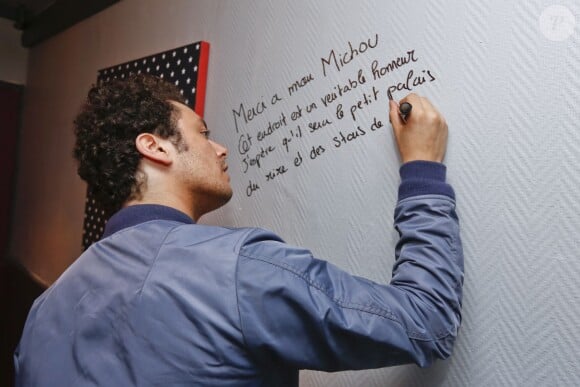 Merci a mon Michou
Cet endroit est un véritable honneur
J'espère qu'il sera le petit palais
du rire et des stars de